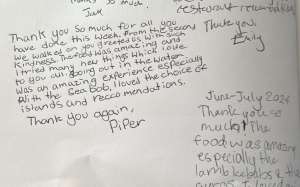 Thank you so much for all you
have done this week. From the second
we walked on you greeted us with such
kindness. The food was amazing and
I tried many new things which I love
to you all. Going out in the water
was an amazing experience especially
with the Sea bob, I loved the choice of
islands and reccomendations.
Thank you again,
Piper
restaurant
Thank you,
June-July 2024
Thank you so
much! The
food was amazing
especially the
lamb kebabs & the